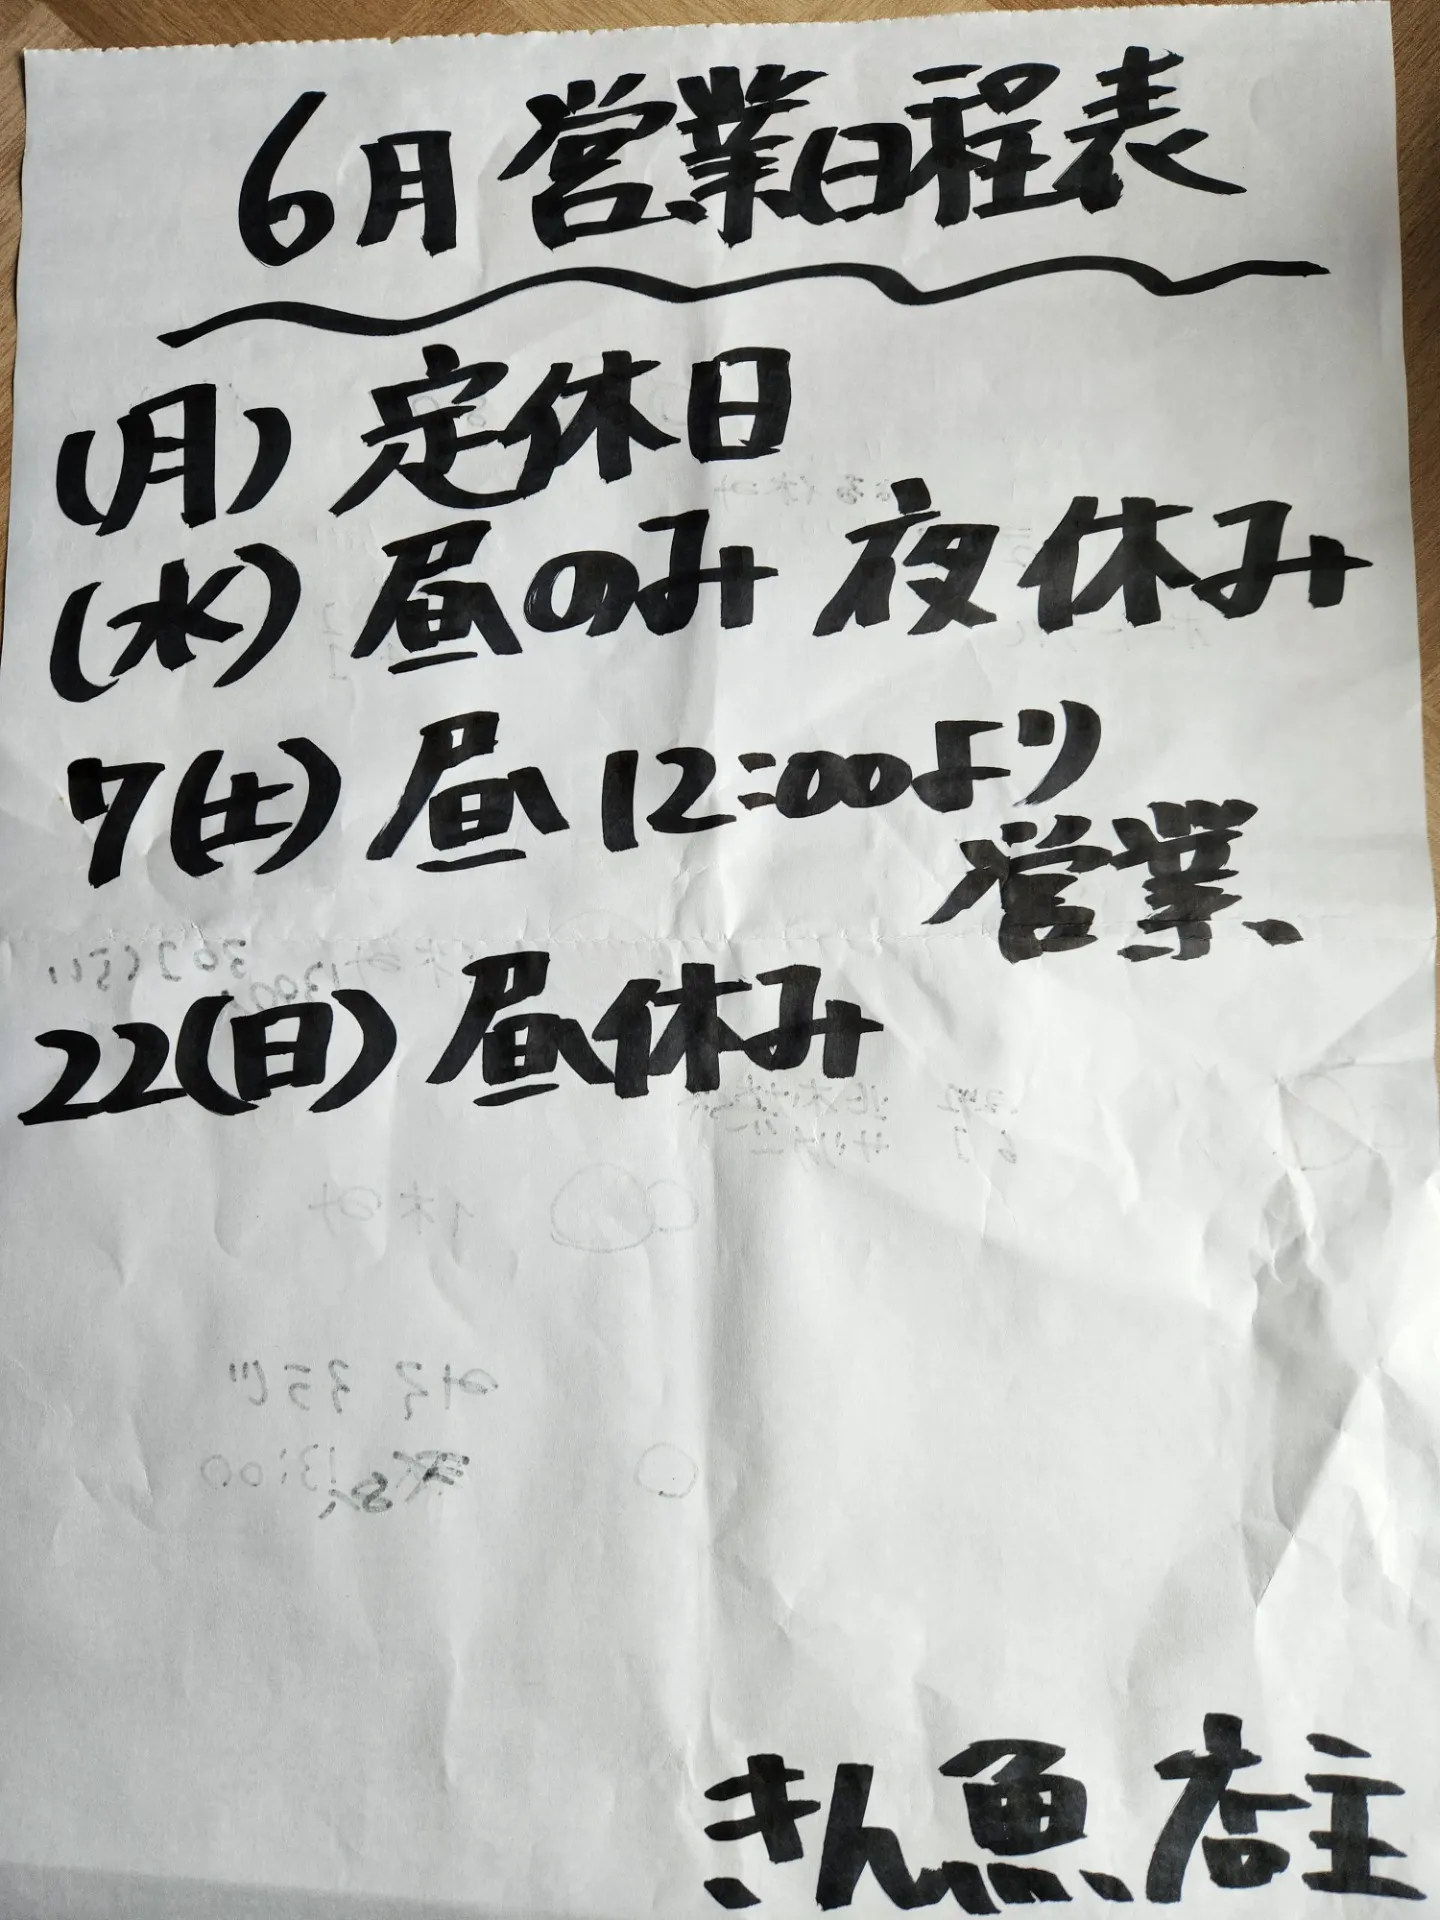 6月営業日程表
(月) 定休日
(水) 昼のみ 夜休み
7(土) 昼12:00より
営業
22(日) 昼休み
きん魚 店主